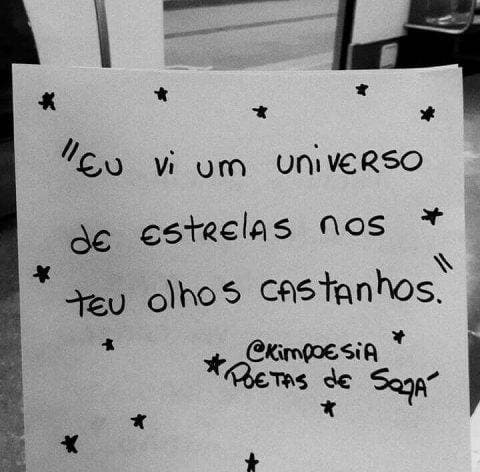 "Eu vi um universo
de estrelas nos
teu olhos castanhos."
@kimpoesia
Poetas de Sojá